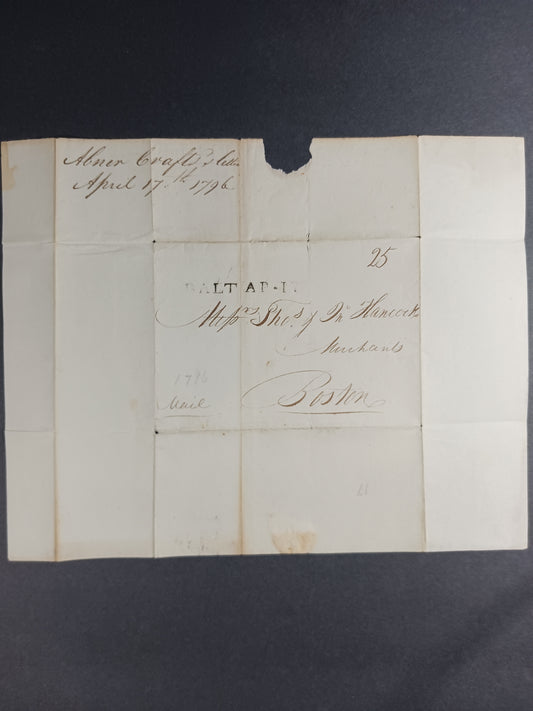 Abner Crafts's lette
April 17.th 1796
25
BALT AP•17
Messrs Thos. & Jn Hancock
Merchants
1796
Mail
Boston